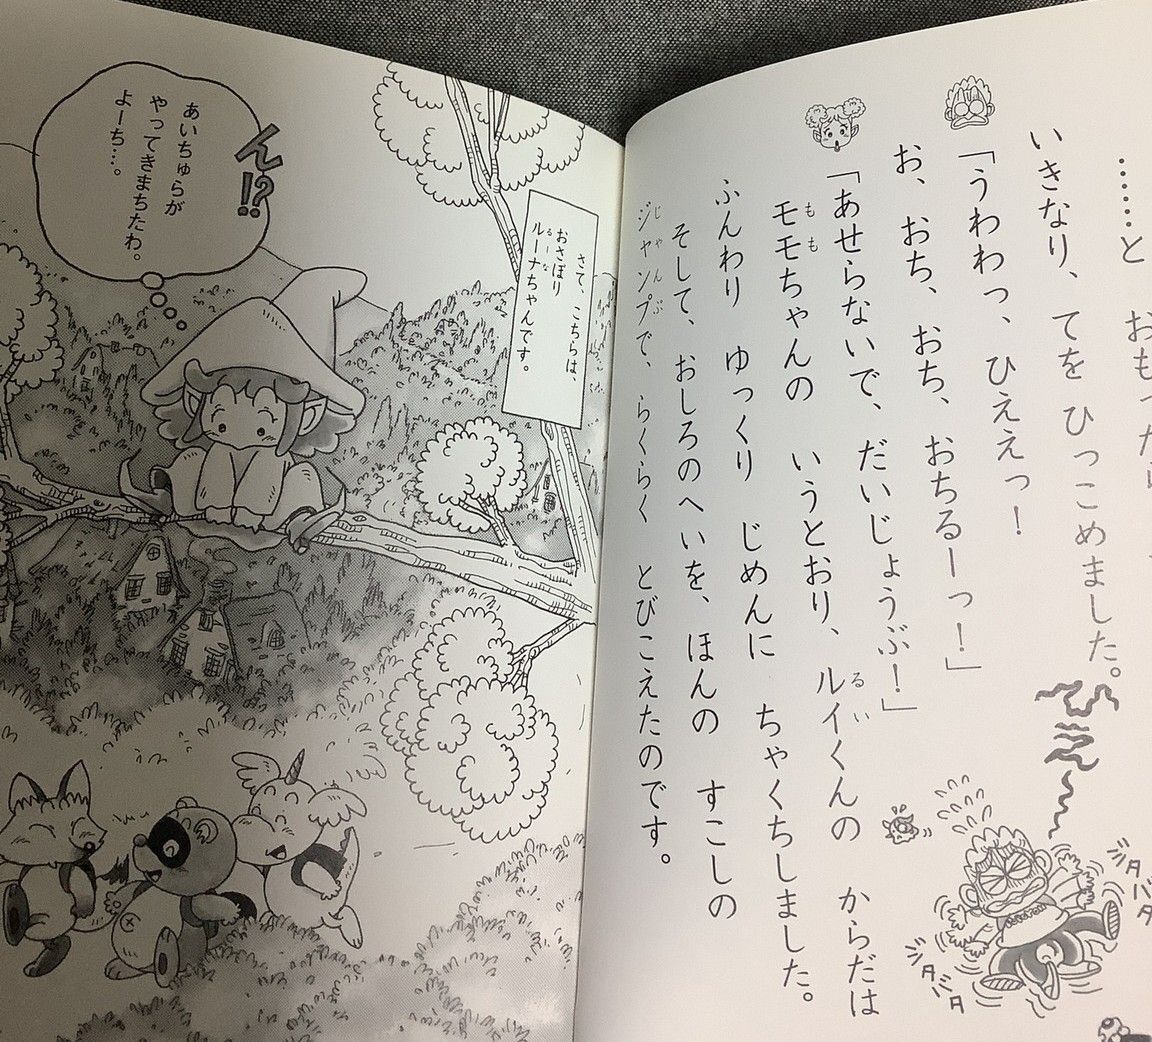 ……と おもったら
いきなり、てを ひっこめました。
「うわわっ、ひええっ！
お、おち、おち、おちるーっ！」
「あせらないで、だいじょうぶ！」
モモちゃんの いうとおり、ルイくんの からだは
もも
るい
ふんわり ゆっくり じめんに ちゃくちしました。
そして、おしろのへいを、ほんの すこしの
ジャンプで、らくらく とびこえたのです。
じゃんぷ
ひえ〜
ジタバタ
ジタバタ
さて、こちらは、
おさぼり
ルーナちゃんです。
るーな
ん!?
あいちゅらが
やってきまちたわ。
よーち…。